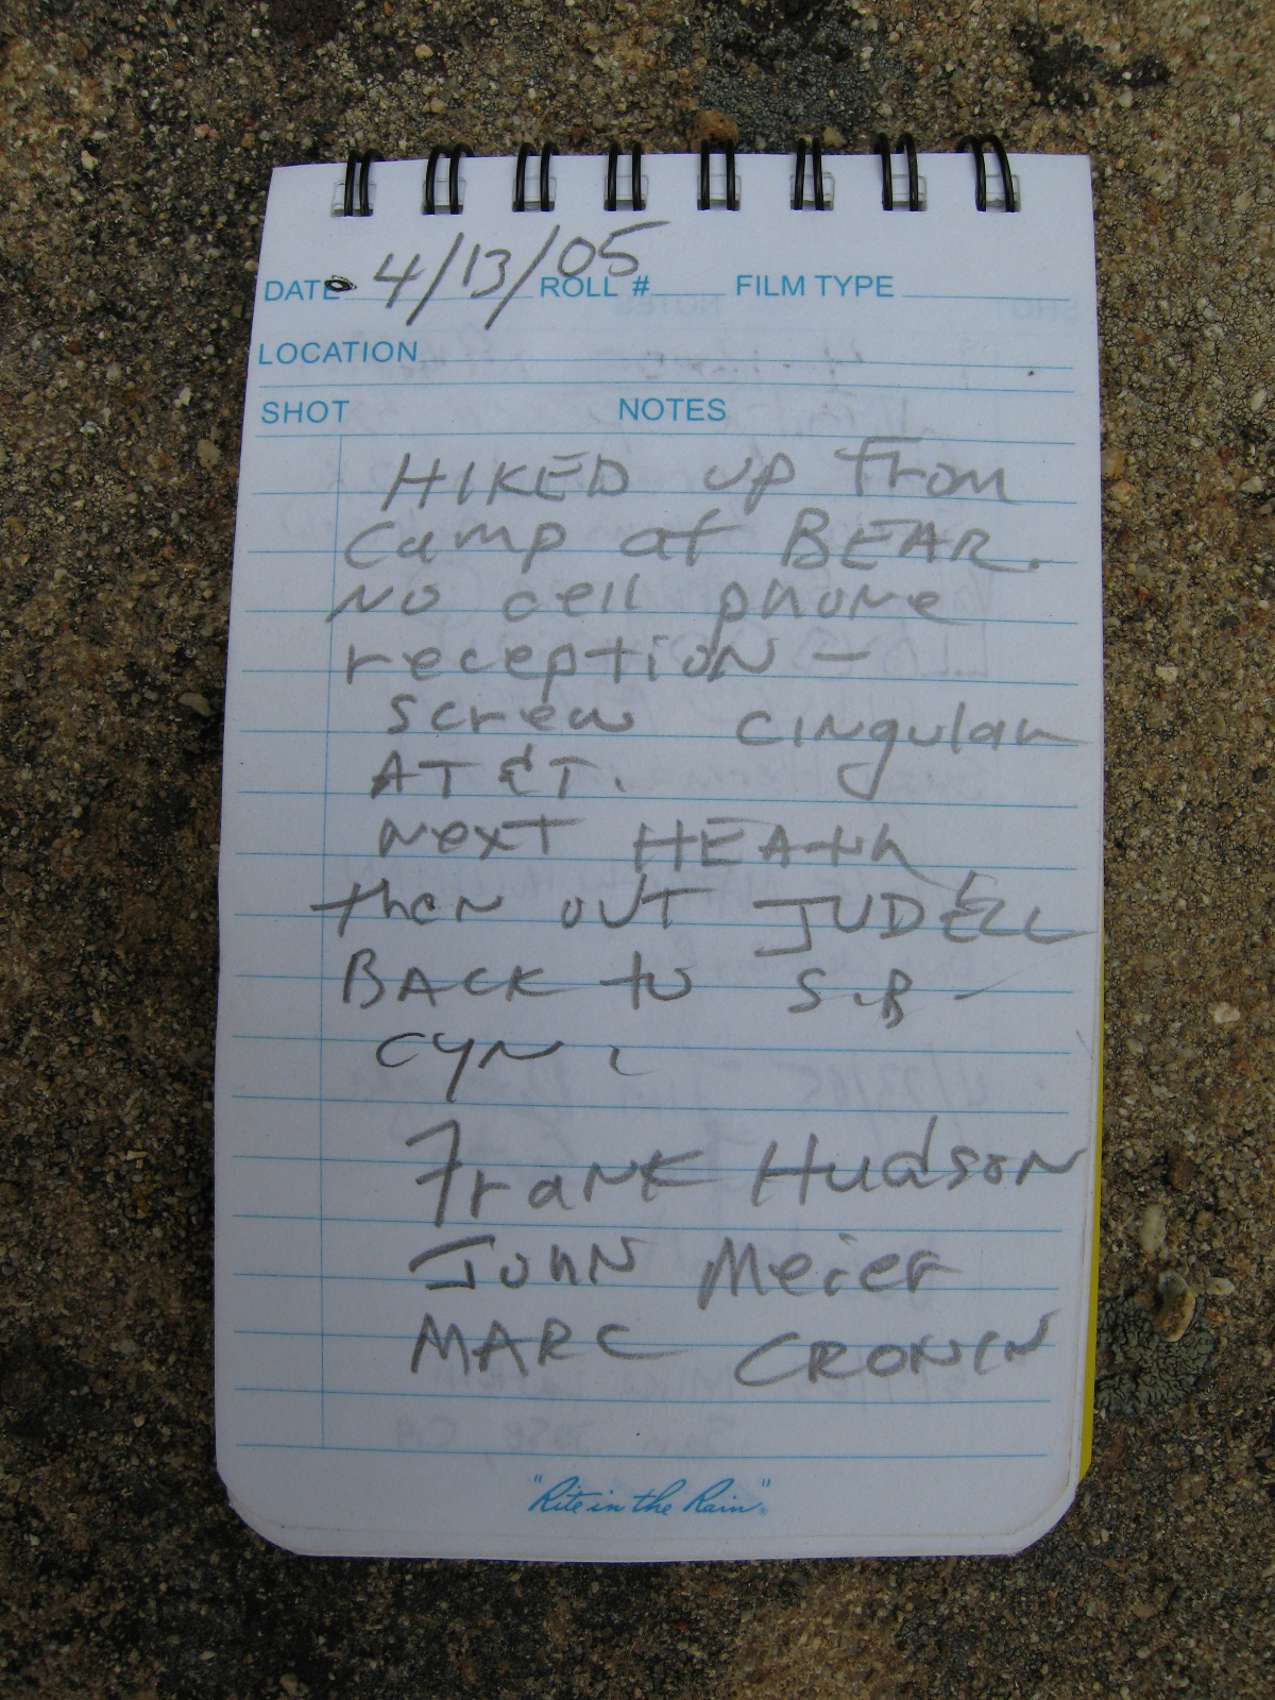 DATE 4/13/05 ROLL # FILM TYPE
LOCATION
SHOT NOTES
HIKED up From
Camp at BEAR.
No cell phone
reception -
Screw Cingular
AT&T.
Next HEAth
then OUT JUDELL
BACK to S.B -
CYN
Frank Hudson
John Meier
MARC CRONIN
"Rite in the Rain"